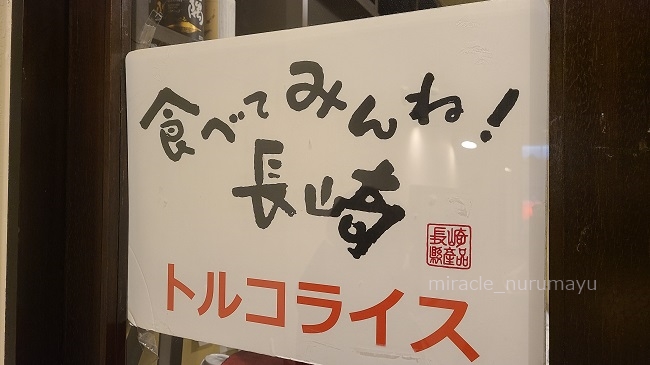 食べてみんね!
長崎
長崎
縣産品
トルコライス
miracle_nurumayu